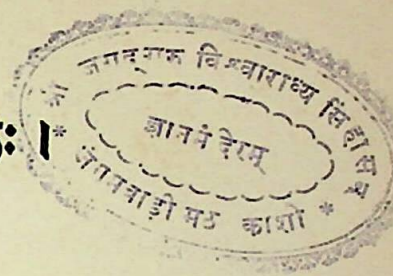 श्री जगद्गुरू विश्वाराध्य सिंहासन
ज्ञानमंदिरम्
* जंगमवाड़ी मठ काशी *
ः।